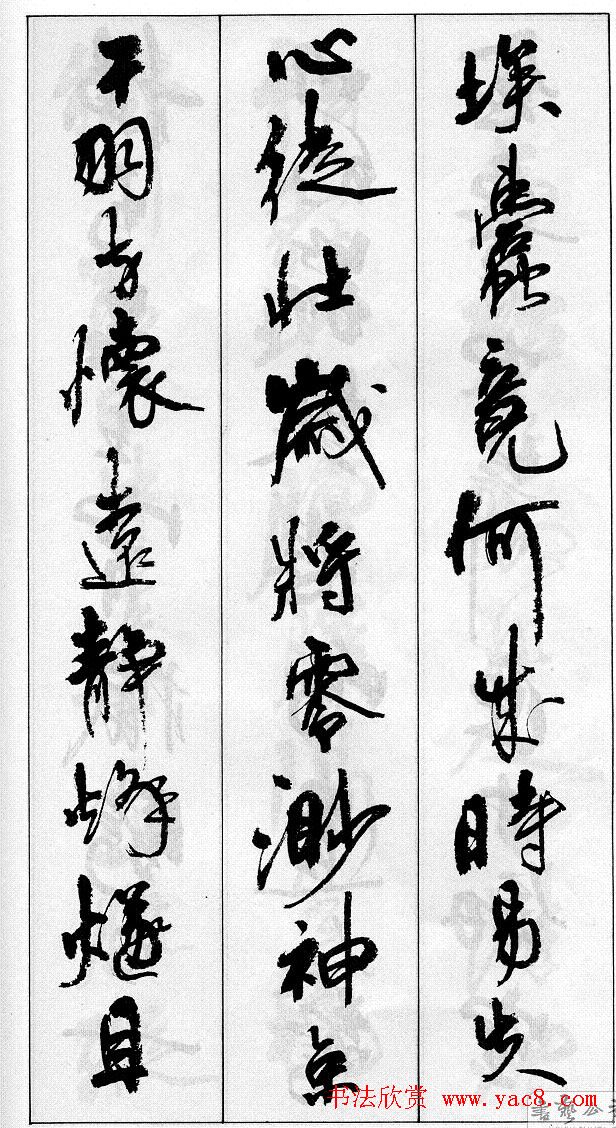 埃蠹竟何成時易失
心徒壯歲將零渺神京
干羽方懷遠靜烽燧且
书法欣赏 www.yac8.com